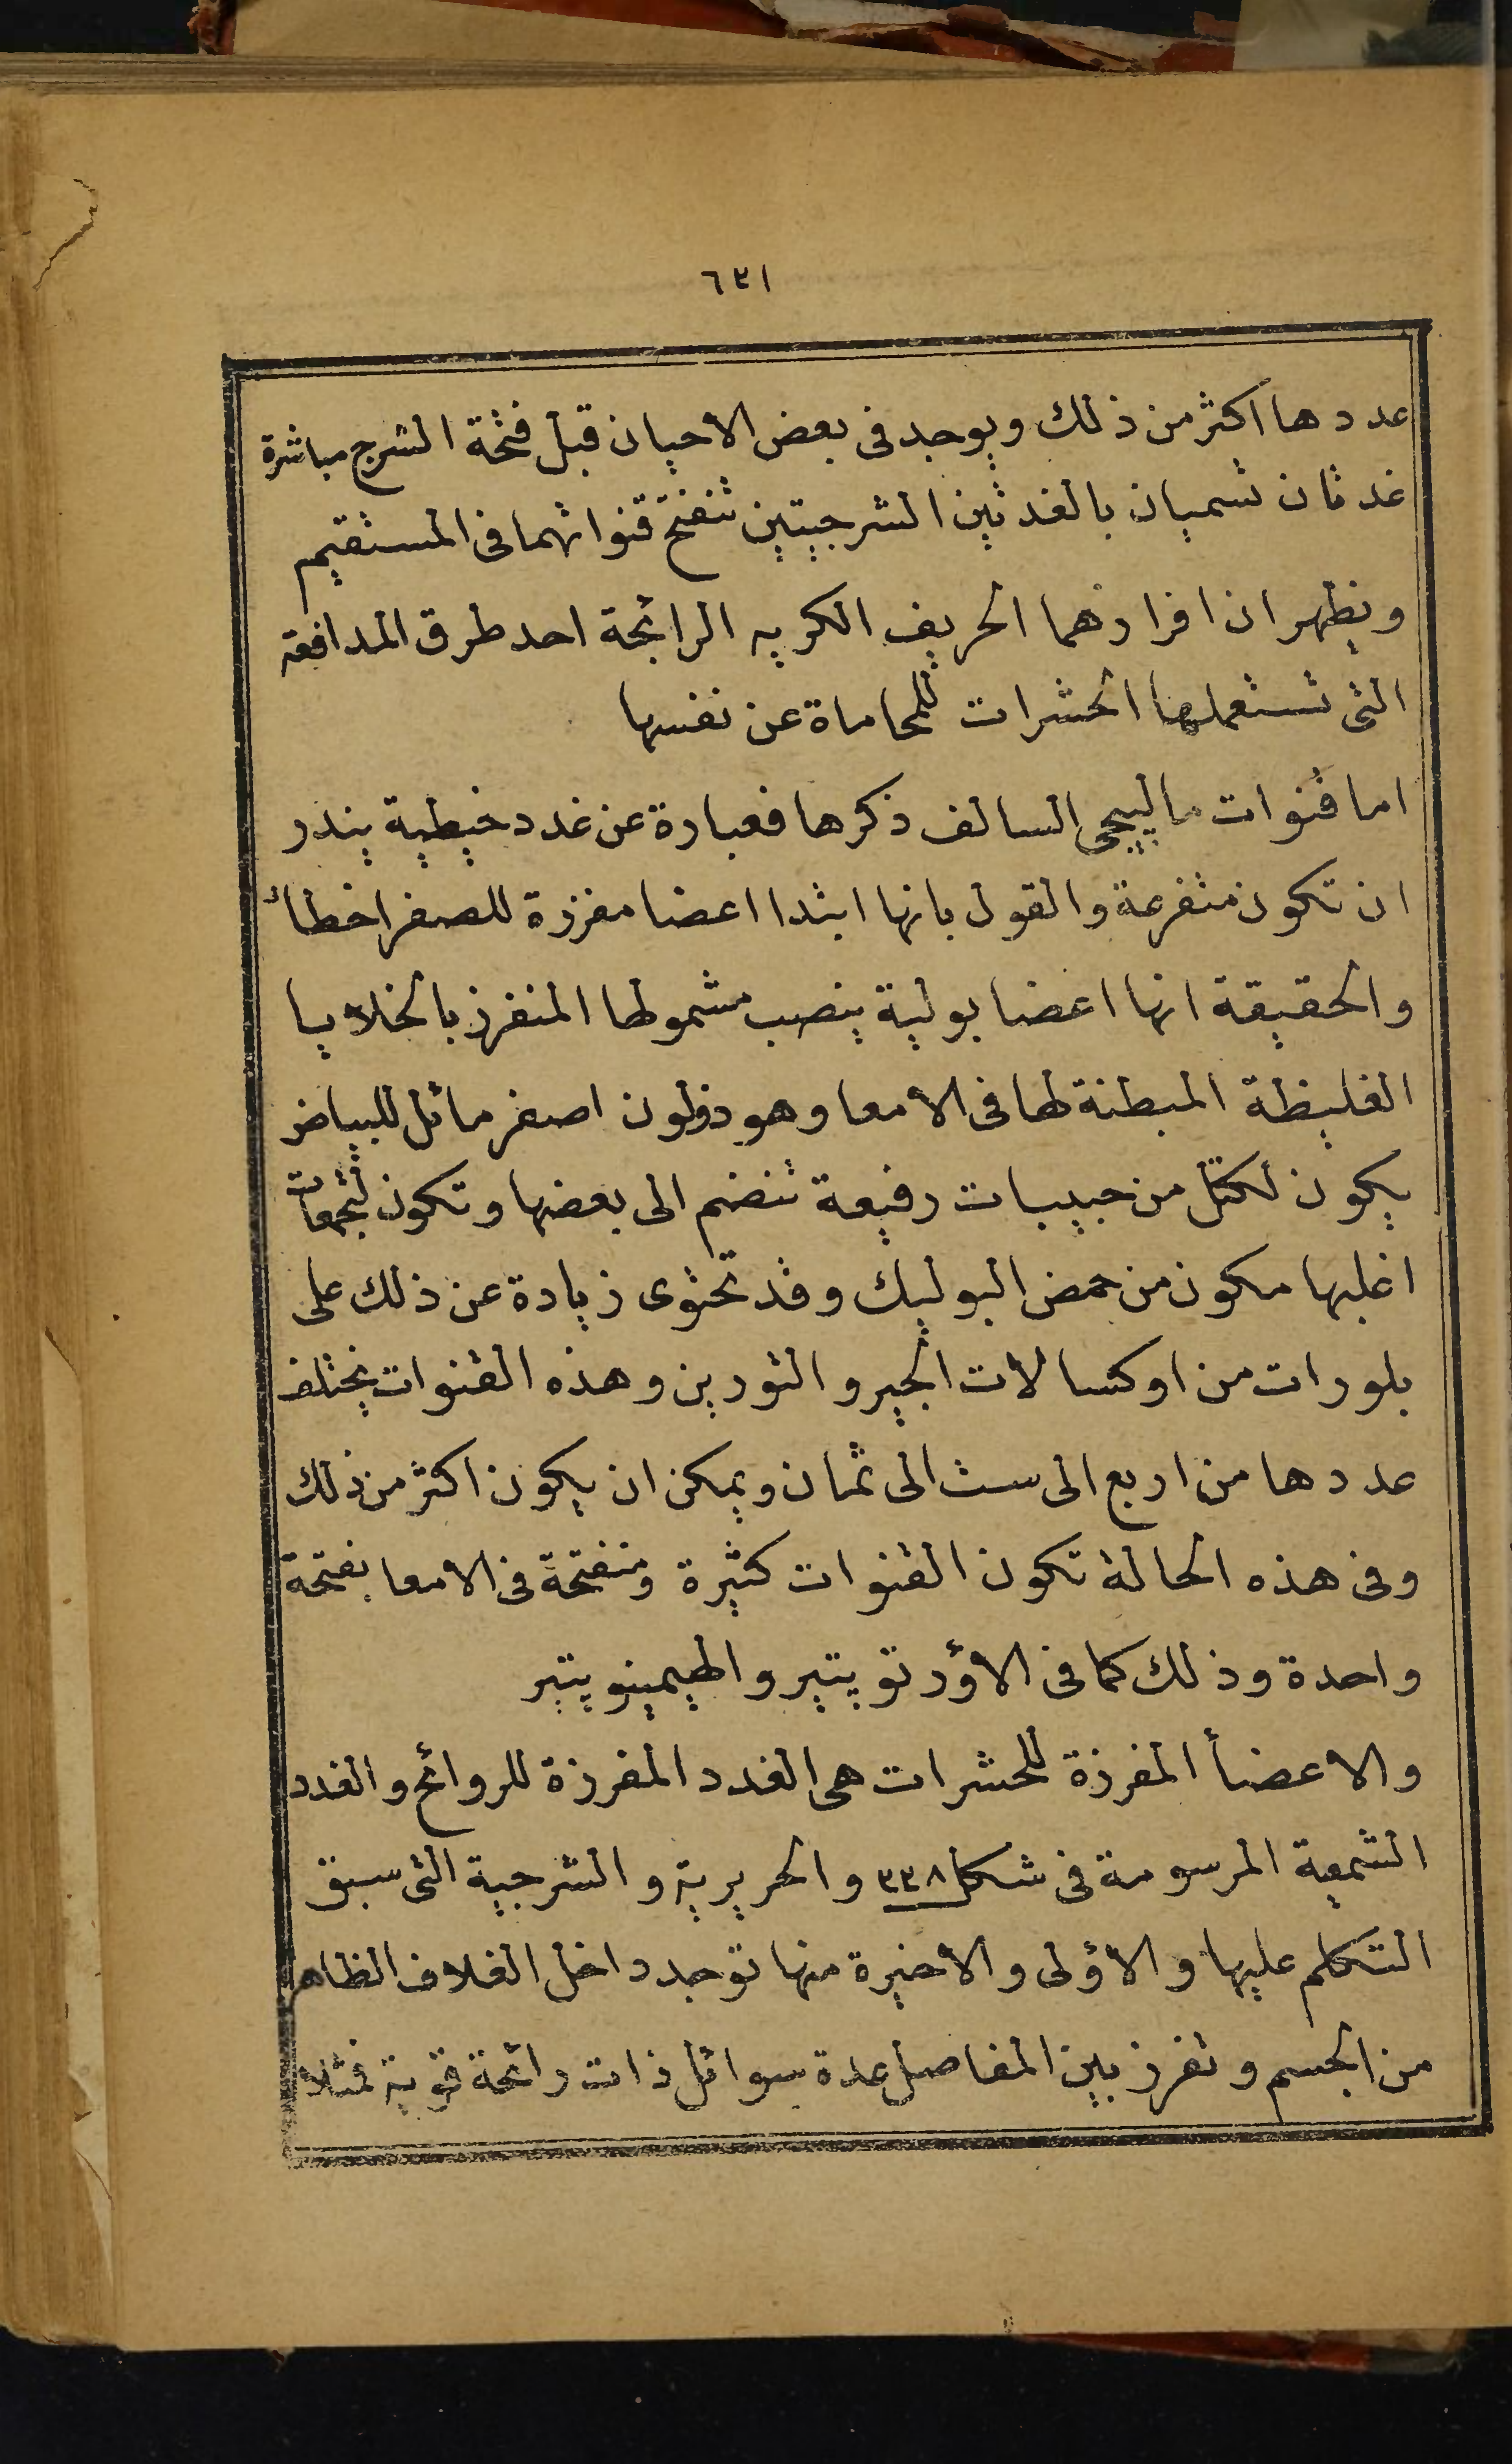 ٦٣١
عددها اكثر من ذلك ويوجد فى بعض الاحيان قبل فتحة الشرج مباشرة
غدتان تسميان بالغدتين الشرجيتين تنفتح قنواتهما فى المستقيم
ويظهر ان افرازهما الحريف الكريه الرائحة احد طرق المدافعة
التى تستعملها الحشرات للمحاماة عن نفسها
اما قنوات مالپيجى السالف ذكرها فعبارة عن غدد خيطية يندر
ان تكون متفرعة والقول بانها ابتدا اعضا مفرزة للصفرا خطأ
والحقيقة انها اعضا بولية ينصب مشمولها المنفرز بالخلايا
الغليظة المبطنة لها فى الامعا وهو ذولون اصفر مائل للبياض
يكون لكتل من حبيبات رفيعة تنضم الى بعضها وتكون لتجمعات
اغلبها مكون من حمض البوليك وقد تحتوى زيادة عن ذلك على
بلورات من اوكسالات الجير والتورين وهذه القنوات يختلف
عددها من اربع الى ست الى ثمان ويمكن ان يكون اكثر من ذلك
وفى هذه الحالة تكون القنوات كثيرة ومنفتحة فى الامعا بفتحة
واحدة وذلك كما فى الاؤرتوپتير والهيمينوپتير
والاعضأ المفرزة للحشرات هى الغدد المفرزة للروائح والغدد
الشمعية المرسومة فى شكل ٣٣٨ والحريرية والشرجية التى سبق
التكلم عليها والاؤلى والاخيرة منها توجد داخل الغلاف الظاهر
من الجسم وتفرز بين المفاصل عدة سوائل ذات رائحة قوية فمثلا